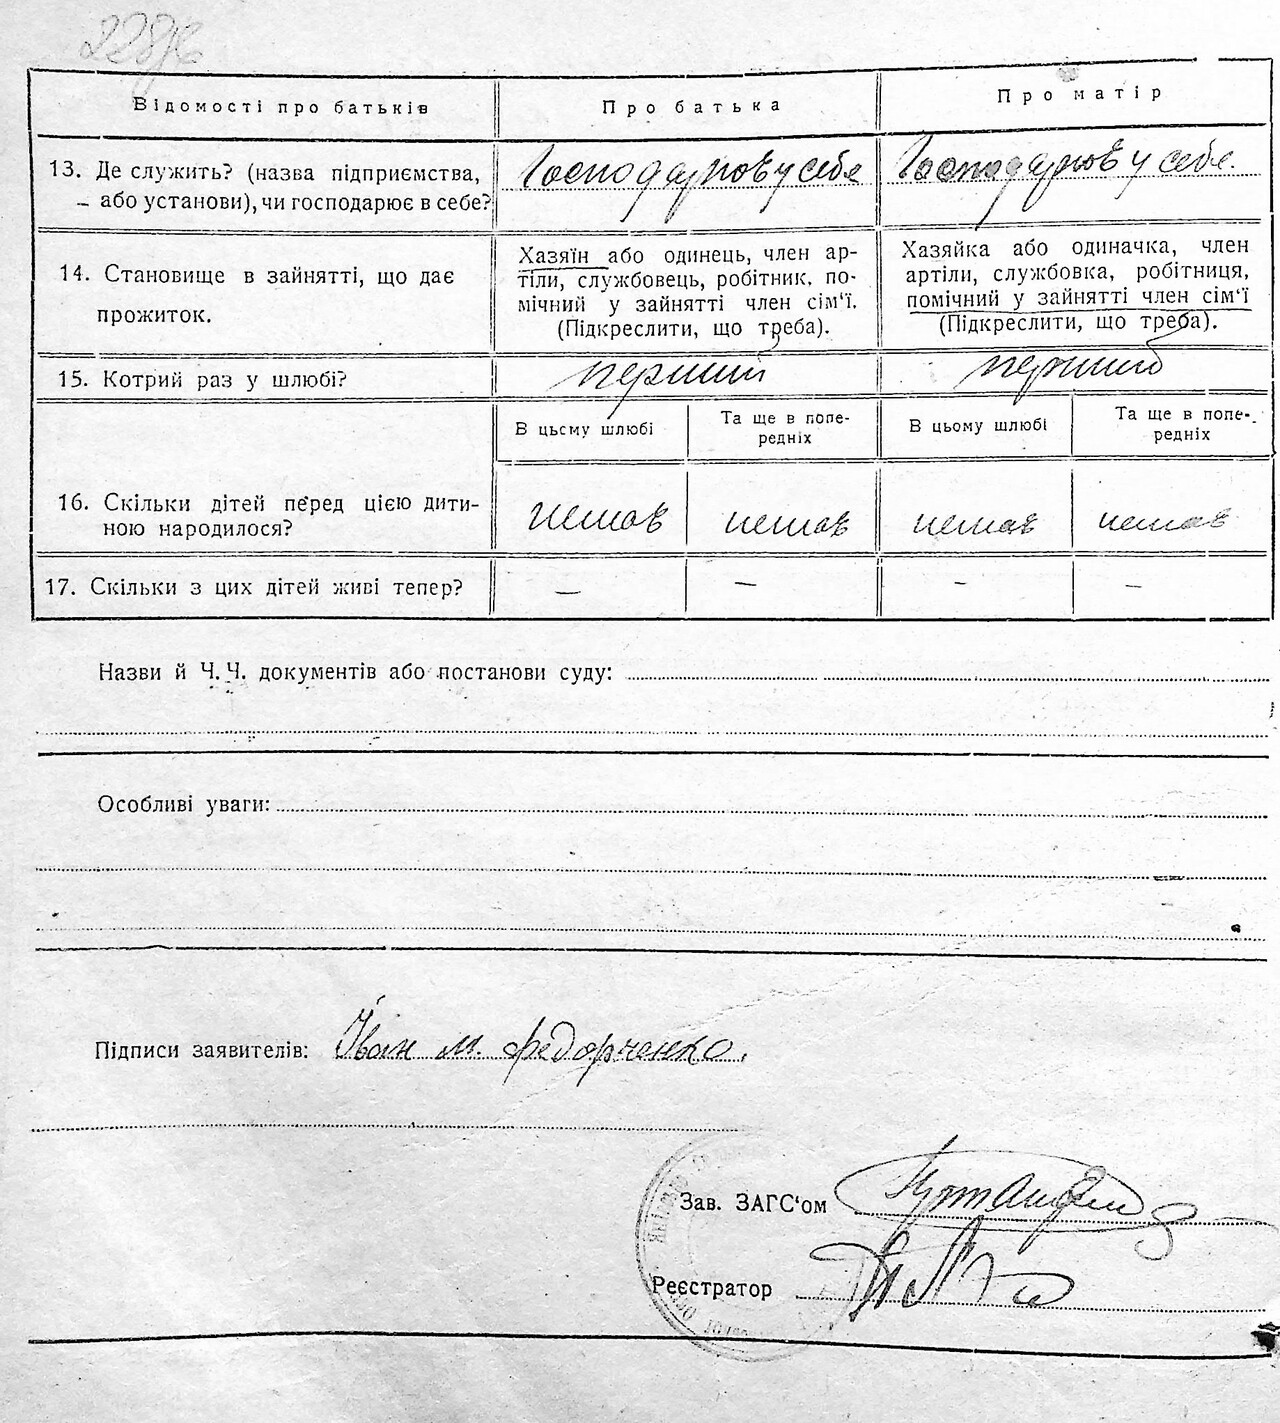 Відомості про батьків
Про батька
Про матір
13. Де служить? (назва підприємства,
або установи), чи господарює в себе?
Господарював у себе
Господарюв у себе.
14. Становище в зайнятті, що дає
прожиток.
Хазяїн або одинець, член ар-
тіли, службовець, робітник, по-
мічний у зайнятті член сім‘ї.
(Підкреслити, що треба).
Хазяйка або одиначка, член
артіли, службовка, робітниця,
помічний у зайнятті член сім‘ї
(Підкреслити, що треба).
15. Котрий раз у шлюбі?
перший
перший
В цьому шлюбі
Та ще в попе-
редніх
В цьому шлюбі
Та ще в попе-
редніх
16. Скільки дітей перед цією дити-
ною народилося?
немав
немав
немав
немав
17. Скільки з цих дітей живі тепер?
—
—
–
—
Назви й Ч. Ч. документів або постанови суду:
Особливі уваги:
Підписи заявителів: Іван М. Федорченко.
Зав. ЗАГС‘ом
Реєстратор